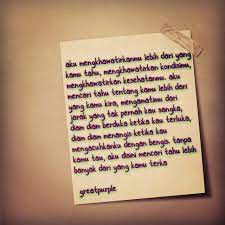 aku mengkhawatirkanmu lebih dari yang
kamu tahu, mengkhawatirkan kondisimu,
mengkhawatirkan kesehatanmu. aku
mencari tahu tentang kamu lebih dari
yang kamu kira, mengamatimu dari
jarak yang tak pernah kau sangka,
diam diam berduka ketika kau terluka,
diam diam menangis ketika kau
mengacuhkanku dengan bengis. tanpa
kamu tau, aku disini mencari tahu lebih
banyak dari yang kamu terka
greatpurple